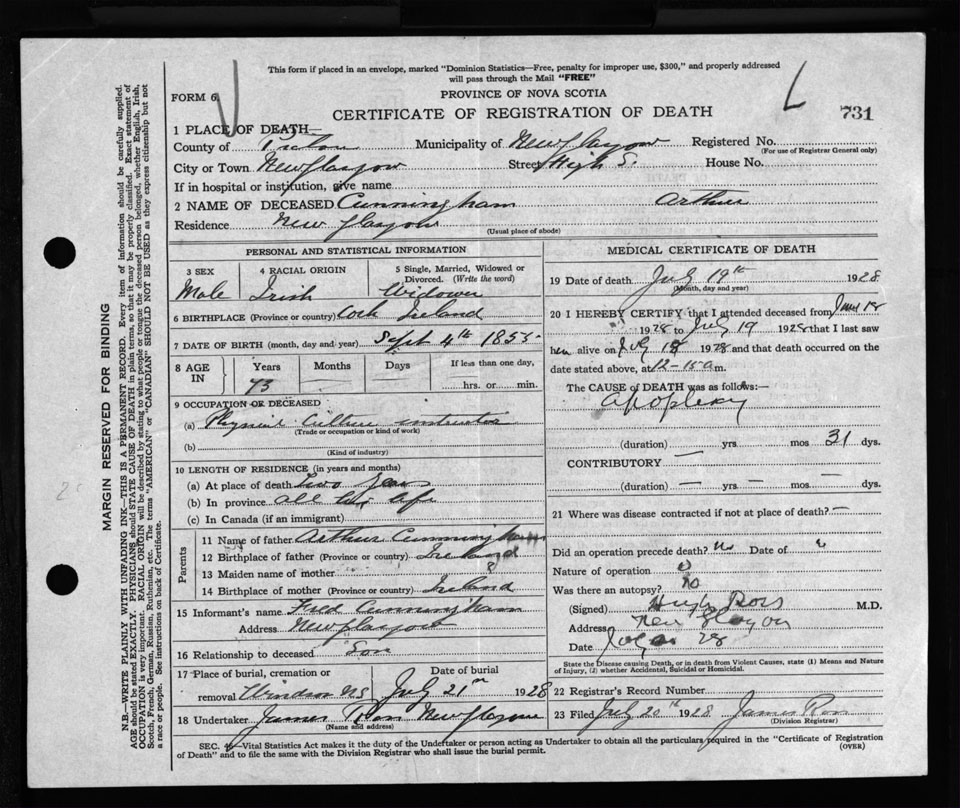 This form if placed in an envelope, marked "Dominion Statistics—Free, penalty for improper use, $300," and properly addressed
will pass through the Mail "FREE"
FORM 6
PROVINCE OF NOVA SCOTIA
CERTIFICATE OF REGISTRATION OF DEATH
731
1 PLACE OF DEATH—
County of Pictou Municipality of New Glasgow Registered No.
(For use of Registrar General only)
City or Town New Glasgow Street High S. House No.
If in hospital or institution, give name
2 NAME OF DECEASED Cunningham Arthur
Residence New Glasgow
(Usual place of abode)
PERSONAL AND STATISTICAL INFORMATION
3 SEX
Male
4 RACIAL ORIGIN
Irish
5 Single, Married, Widowed or
Divorced. (Write the word)
Widower
6 BIRTHPLACE (Province or country) Cork Ireland
7 DATE OF BIRTH (month, day and year) Sept 4th 1855
8 AGE
IN
Years
73
Months
Days
If less than one day,
hrs. or min.
9 OCCUPATION OF DECEASED
(a) Physical Culture instructor
(Trade or occupation or kind of work)
(b)
(Kind of industry)
10 LENGTH OF RESIDENCE (in years and months)
(a) At place of death Two years
(b) In province all his life
(c) In Canada (if an immigrant)
Parents
11 Name of father Arthur Cunningham
12 Birthplace of father (Province or country) Ireland
13 Maiden name of mother
14 Birthplace of mother (Province or country) Ireland
15 Informant's name Fred Cunningham
Address New Glasgow
16 Relationship to deceased Son
17 Place of burial, cremation or Date of burial
removal Windsor NS July 21st 1928
18 Undertaker James Ross New Glasgow
(Name and address)
MEDICAL CERTIFICATE OF DEATH
19 Date of death July 19th 1928
(Month, day and year)
20 I HEREBY CERTIFY that I attended deceased from June 18
1928 to July 19 1928 that I last saw
him alive on July 18 1928 and that death occurred on
date stated above, at 12-15 a m.
The CAUSE OF DEATH was as follows:—
apoplexy
(duration) yrs. mos 31 dys.
CONTRIBUTORY —
(duration) — yrs — mos — dys.
21 Where was disease contracted if not at place of death? —
Did an operation precede death? no Date of
Nature of operation
Was there an autopsy? no
(Signed) Hugh Ross M.D.
Address New Glasgow
Date
State the Disease causing Death, or in death from Violent Causes, state (1) Means and Nature
of Injury, (2) whether Accidental, Suicidal or Homicidal.
22 Registrar's Record Number
23 Filed July 20th 1928 James Ross
(Division Registrar)
SEC. —Vital Statistics Act makes it the duty of the Undertaker or person acting as Undertaker to obtain all the particulars required in the "Certificate of Registration
of Death" and to file the same with the Division Registrar who shall issue the burial permit.
(OVER)
MARGIN RESERVED FOR BINDING
N.B.—WRITE PLAINLY WITH UNFADING INK—THIS IS A PERMANENT RECORD. Every item of information should be carefully supplied.
AGE should be stated EXACTLY. PHYSICIANS should STATE CAUSE OF DEATH in plain terms, so that it may be properly classified. Exact statement of
OCCUPATION is very important. RACIAL ORIGIN will be described by stating to what people or tongue the deceased person belonged, whether English, Irish,
Scotch, French, German, Russian, Ruthenian, etc. The terms "AMERICAN" or "CANADIAN" SHOULD NOT BE USED as they express citizenship but not
a race or people. See instructions on back of Certificate.